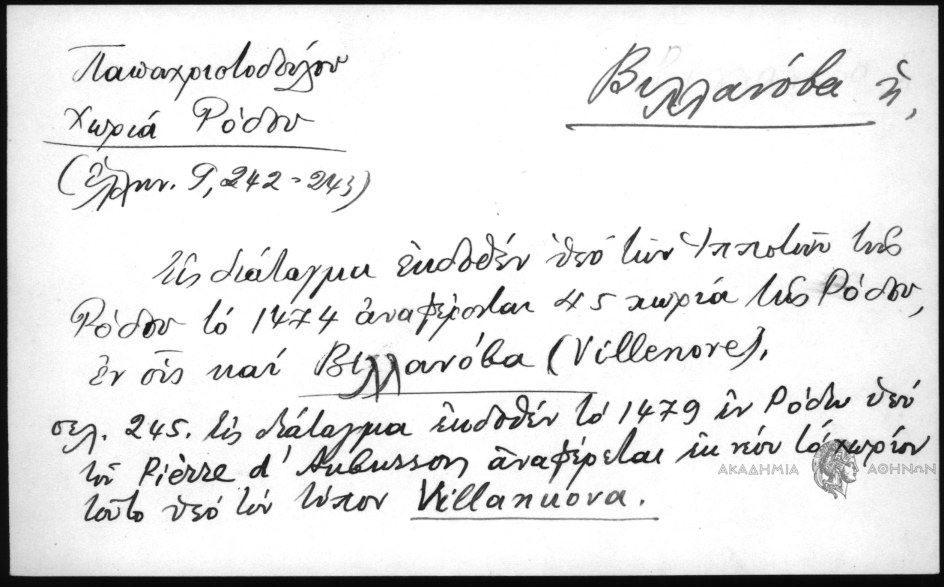 Παπαχριστοδούλου
Χωριά Ρόδου
(Ἑλλην. 9, 242-243)
Βιλλανόβα ἡ,
Εἰς διάταγμα ἐκδοθέν ὑπό τῶν Ἱπποτῶν τῆς
Ρόδου τό 1474 ἀναφέρονται 45 χωρία τῆς Ρόδου,
ἐν οἷς καί Βιλλανόβα (Villenove).
σελ. 245. Εἰς διάταγμα ἐκδοθέν τό 1479 ἐν Ρόδῳ ὑπό
τοῦ Pièrre d'Aubusson ἀναφέρεται ἐκ νέου τό χωρίον
τοῦτο ὑπό τόν τύπον Villanuova.
ΑΚΑΔΗΜΙΑ ΑΘΗΝΩΝ